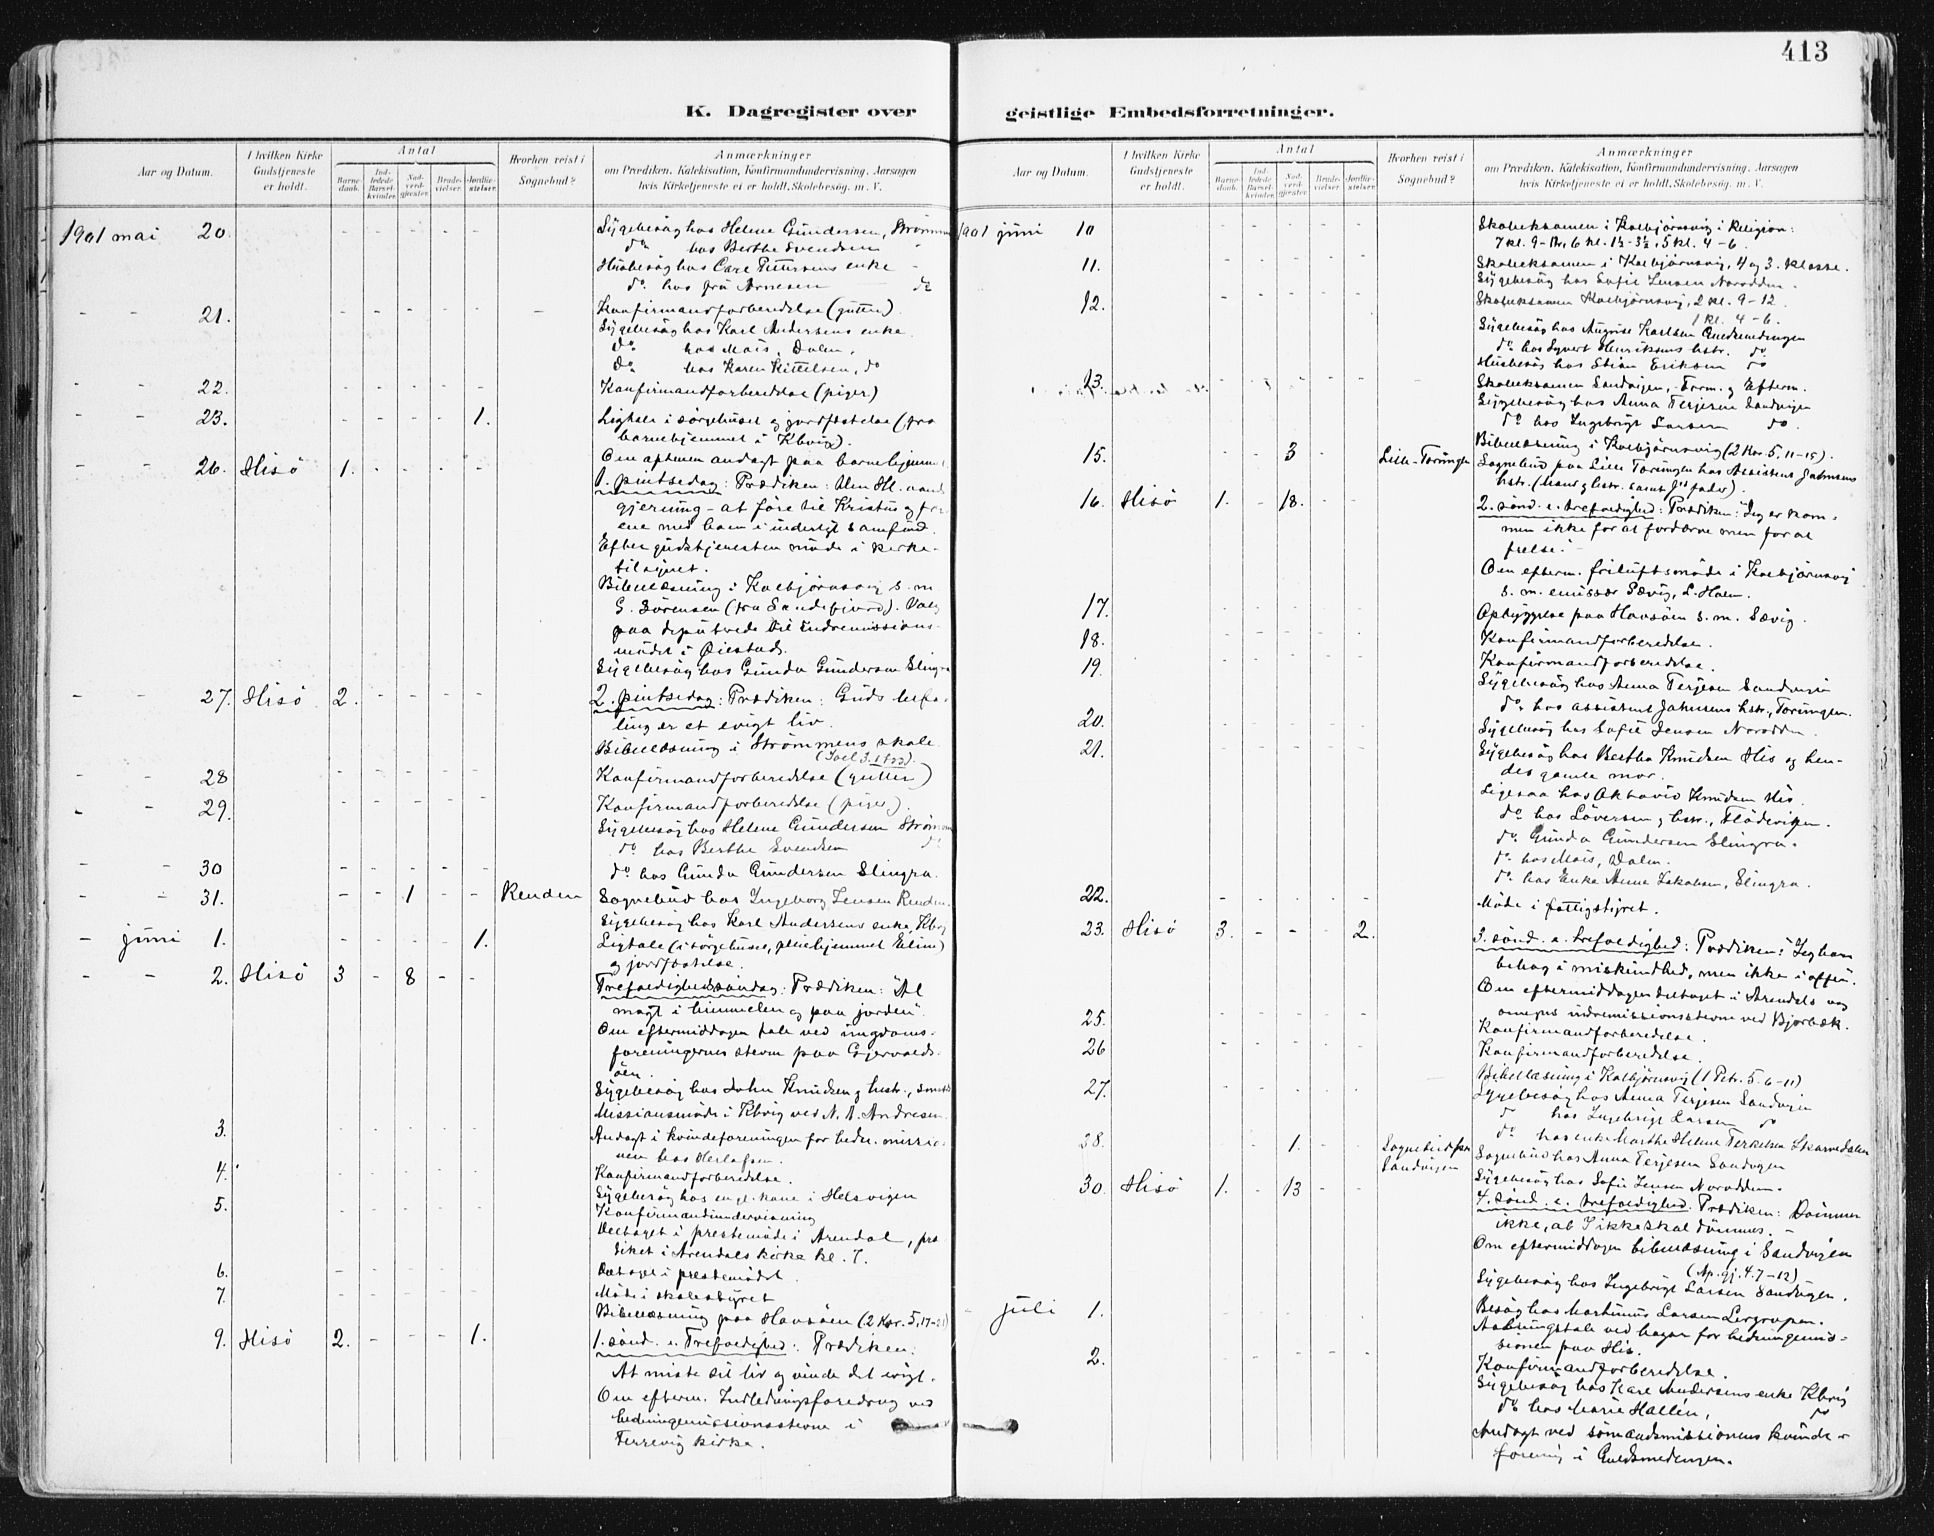 413
K. Dagregister over
Aar og Datum.
I hvilken Kirke Gudstjeneste er holdt.
Antal
Barnedaab.
Indledede Barselkvinder.
Nadverdgjester.
Brudevielser.
Jordfæstelser.
Hvorhen reist i Sognebud?
Anmærkninger
om Prædiken, Katekisation, Konfirmandundervisning, Aarsagen
hvis Kirketjeneste ei er holdt, Skolebesøg m. V.
1901 mai 20. Sygebesøg hos Helene Gundersen, Strømmen
do hos Berthe Svendsen
Husbesøg hos Carl Pettersens enke
do hos fru Arnesen do
21. Konfirmandforberedelse (gutter).
Sygebesøg hos Karl Andersens enke.
do hos Mois, Dalen,
do hos Karen Kittelsen, do
22. Konfirmandforberedelse (piger)
23. 1. Ligtale i sørgehuset og jordfæstelse (fra
barnehjemmet i Kbvig).
Om aftenen andagt paa barnehjemmet.
26. Hisø 1. 1. pintsedag: Prædiken: Den Hl. aands
gjerning - at føre til Kristus og for-
ene med ham i inderligt samfund.
Efter gudstjenesten møde i kirke-
tilsynet.
Bibellæsning i Kolbjørnsvig s. m.
G. Sørensen (fra Sandefjord). Valg
paa deputerede til indremissions-
mødet i Øiestad.
Sygebesøg hos Gunda Gundersen Slingra
27. Hisø 2. 2. pintsedag: Prædiken: Guds befa-
ling er et evigt liv.
Bibellæsning i Strømmens skole
28 Konfirmandforberedelse (gutter)
29. Konfirmandforberedelse (piger).
Sygebesøg hos Helene Gundersen Strømmen
do hos Berthe Svendsen do
30 do hos Gunda Gundersen Slingra.
31. 1 Renden Sognebud hos Ingeborg Jensen Renden.
Sygebesøg hos Karl Andersens enke, Kbvg
juni 1. 1. Ligtale (i sørgehuset, pleiehjemmet Elim)
og jordfæstelse.
2. Hisø 3 8 Trefoldighedssøndag: Prædiken: "Al
magt i himmelen og paa jorden".
Om eftermiddagen tale ved ungdoms-
foreningernes stevne paa Gjervolds-
øen.
Sygebesøg hos John Knudsen og hustr.,
Missionsmøde i Kbvig ved N. A. Andresen.
3. Andagt i kvindeforeningen for hedn. missio-
nen hos Herlofsen.
4. Konfirmandforberedelse.
Sygebesøg hos en gl. kone i Helsvigen
5. Konfirmandundervisning
Deltaget i prestemøde i Arendal, præ
diket i Arendals kirke kl. 7.
6. Deltaget i prestemødet.
7. Møde i skolestyret
Bibellæsning paa Havsøen (2 Kor. 5, 17-21)
9. Hisø 2. 1. 1. sønd. e. Trefoldighed: Prædiken:
At miste sit liv og vinde det evigt.
Om efterm. Indledningsforedrag ved
hedningemissionsstevne i
Færevig kirke.
geistlige Embedsforretninger.
Aar og Datum.
I hvilken Kirke Gudstjeneste er holdt.
Antal
Barnedaab.
Indledede Barselkvinder.
Nadverdgjester.
Brudevielser.
Jordfæstelser.
Hvorhen reist i Sognebud?
Anmærkninger
om Prædiken, Katekisation, Konfirmandundervisning, Aarsagen
hvis Kirketjeneste ei er holdt, Skolebesøg m. V.
1901 juni 10 Skoleeksamen i Kolbjørnsvig i Religion:
7 kl. 9-12, 6 kl. 1½-3½, 5 kl. 4-6.
11. Skoleeksamen i Kolbjørnsvig, 4 og 3. klasse.
Sygebesøg hos Sofie Jensen Narodden.
12. Skoleeksamen Kolbjørnsvig, 2 kl. 9-12.
1 kl. 4-6.
Sygebesøg hos August Karlsen Guldsmedengen
do hos Syvert Henriksens hstr. do
Husbesøg hos Stian Eriksen do
13. Skoleeksamen Sandvigen, Form. og Efterm.
Sygebesøg hos Anna Terjesen Sandvigen
do hos Ingebrigt Larsen do.
Bibellæsning i Kolbjørnsvig (2 Kor. 5, 11-15).
15. 3 Lille-Torungen Sognebud paa Lille Torungen hos Assistent Jahnsens
hstr. (Mand og hstr. samt fader).
16. Hisø 1. 18. 2. sønd. e. trefoldighed: Prædiken: "Jeg er kom-
men ikke for at fordærve men for at
frelse."
Om efterm. friluftsmøde i Kolbjørnsvig
s. m. emissær Sævig, L. Holm.
17. Opbyggelse paa Havsøen s. m. Sævig.
18. Konfirmandforberedelse.
19. Konfirmandforberedelse.
Sygebesøg hos Anna Terjesen Sandvigen
do hos assistent Jahnsens hstr., Torungen.
20. Sygebesøg hos Sofie Jensen Narodden.
21. Sygebesøg hos Bertha Knudsen His og hen-
des gamle mor.
Ligesaa hos Oktavia Knudsen His.
do hos Løversen og hstr., Flødevigen.
do Gunda Gundersen Slingra.
do hos Mois, Dalen.
do hos Enke Anna Jakobsen, Slingra.
22. Møde i fattigstyret.
23. Hisø 3. 2. 3. sønd. e. trefoldighed: Prædiken: "Jeg har
behag i miskundhed, men ikke i offer.
Om eftermiddagen deltaget i Arendals og
omegns indremissionsstevne ved Bjorbæk.
25. Konfirmandforberedelse.
26 Konfirmandforberedelse.
27. Bibellæsning i Kolbjørnsvig (1 Petr. 5. 6-11)
Sygebesøg hos Anna Terjesen Sandvigen
do hos Ingebrigt Larsen do
do hos enke Marthe Helene Terkelsen Skarvedalen
28. 1. Sognebud paa Sandvigen Sognebud hos Anna Terjesen Sandvigen
Sygebesøg hos Sofie Jensen Narodden.
30. Hisø 1. 13 4. sønd. e. trefoldighed. Prædiken: Dømmer
ikke, at I ikke skal dømmes.
Om eftermiddagen bibellæsning i Sandvigen
(Ap. gj. 4. 7-12)
Sygebesøg hos Ingebrigt Larsen Sandvigen.
juli 1. Besøg hos Martinus Larsen Lergruben.
Aabningstale ved basar for hedningemis-
sionen paa His.
2. Konfirmandforberedelse.
Sygebesøg hos Karl Andersens enke Kbvig
do hos Marie Hallén, do
Andagt ved sømandsmissionens kvinde-
forening i Guldsmedengen.